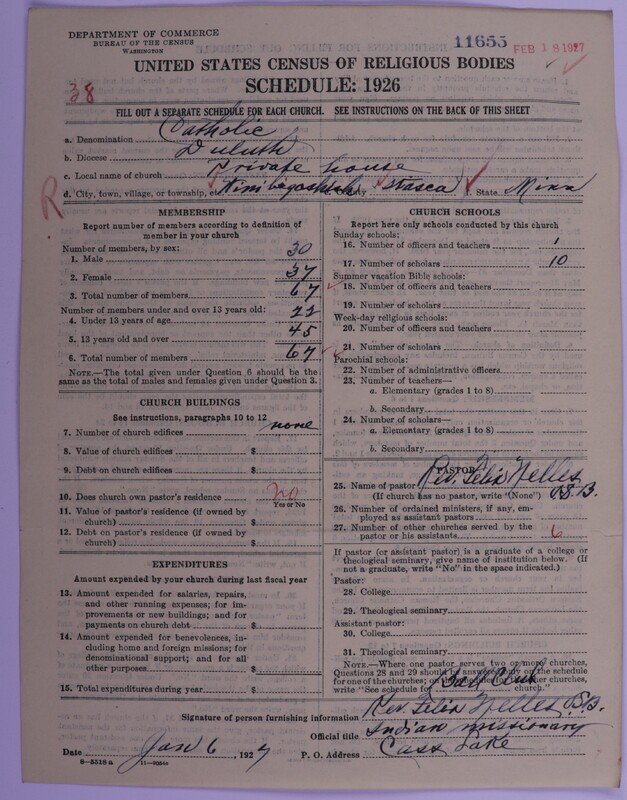 DEPARTMENT OF COMMERCE
BUREAU OF THE CENSUS
WASHINGTON
11655 FEB 18 1927
UNITED STATES CENSUS OF RELIGIOUS BODIES
SCHEDULE: 1926
38
FILL OUT A SEPARATE SCHEDULE FOR EACH CHURCH. SEE INSTRUCTIONS ON THE BACK OF THIS SHEET
a. Denomination Catholic
b. Diocese Duluth
c. Local name of church Private house
d. City, town, village, or township, etc. County Itasca State Minn
R
MEMBERSHIP
Report number of members according to definition of
member in your church
Number of members, by sex:
1. Male 30
2. Female 37
3. Total number of members 67
Number of members under and over 13 years old:
4. Under 13 years of age 22
5. 13 years old and over 45
6. Total number of members 67
NOTE.—The total given under Question 6 should be the
same as the total of males and females given under Question 3.
CHURCH BUILDINGS
See instructions, paragraphs 10 to 12
7. Number of church edifices none
8. Value of church edifices $
9. Debt on church edifices $
10. Does church own pastor's residence no
Yes or No
11. Value of pastor's residence (if owned by
church) $
12. Debt on pastor's residence (if owned by
church) $
EXPENDITURES
Amount expended by your church during last fiscal year
13. Amount expended for salaries, repairs,
and other running expenses; for im-
provements or new buildings; and for
payments on church debt $
14. Amount expended for benevolences,
including home and foreign missions; for
denominational support; and for all
other purposes $
15. Total expenditures during year $
CHURCH SCHOOLS
Report here only schools conducted by this church
Sunday schools:
16. Number of officers and teachers 1
17. Number of scholars 10
Summer vacation Bible schools:
18. Number of officers and teachers
19. Number of scholars
Week-day religious schools:
20. Number of officers and teachers
21. Number of scholars
Parochial schools:
22. Number of administrative officers
23. Number of teachers—
a. Elementary (grades 1 to 8)
b. Secondary
24. Number of scholars—
a. Elementary (grades 1 to 8)
b. Secondary
PASTOR
25. Name of pastor Rev. Felix Nelles O.S.B.
(If church has no pastor, write "(None")
26. Number of ordained ministers, if any, em-
ployed as assistant pastors
27. Number of other churches served by the
pastor or his assistants 6
If pastor (or assistant pastor) is a graduate of a college or
theological seminary, give name of institution below. (If
not a graduate, write "No" in the space indicated.)
Pastor:
28. College
29. Theological seminary
Assistant pastor:
30. College
31. Theological seminary
NOTE.—Where one pastor serves two or more churches,
Questions 28 and 29 should be answered only on the schedule
for one of the churches; on the schedules for the other churches,
write "See schedule for church."
Signature of person furnishing information Rev. Felix Nelles O.S.B.
Official title Indian missionary
Date Jan 6, 1927 P. O. Address Cass Lake
8—5318a 11—9054a